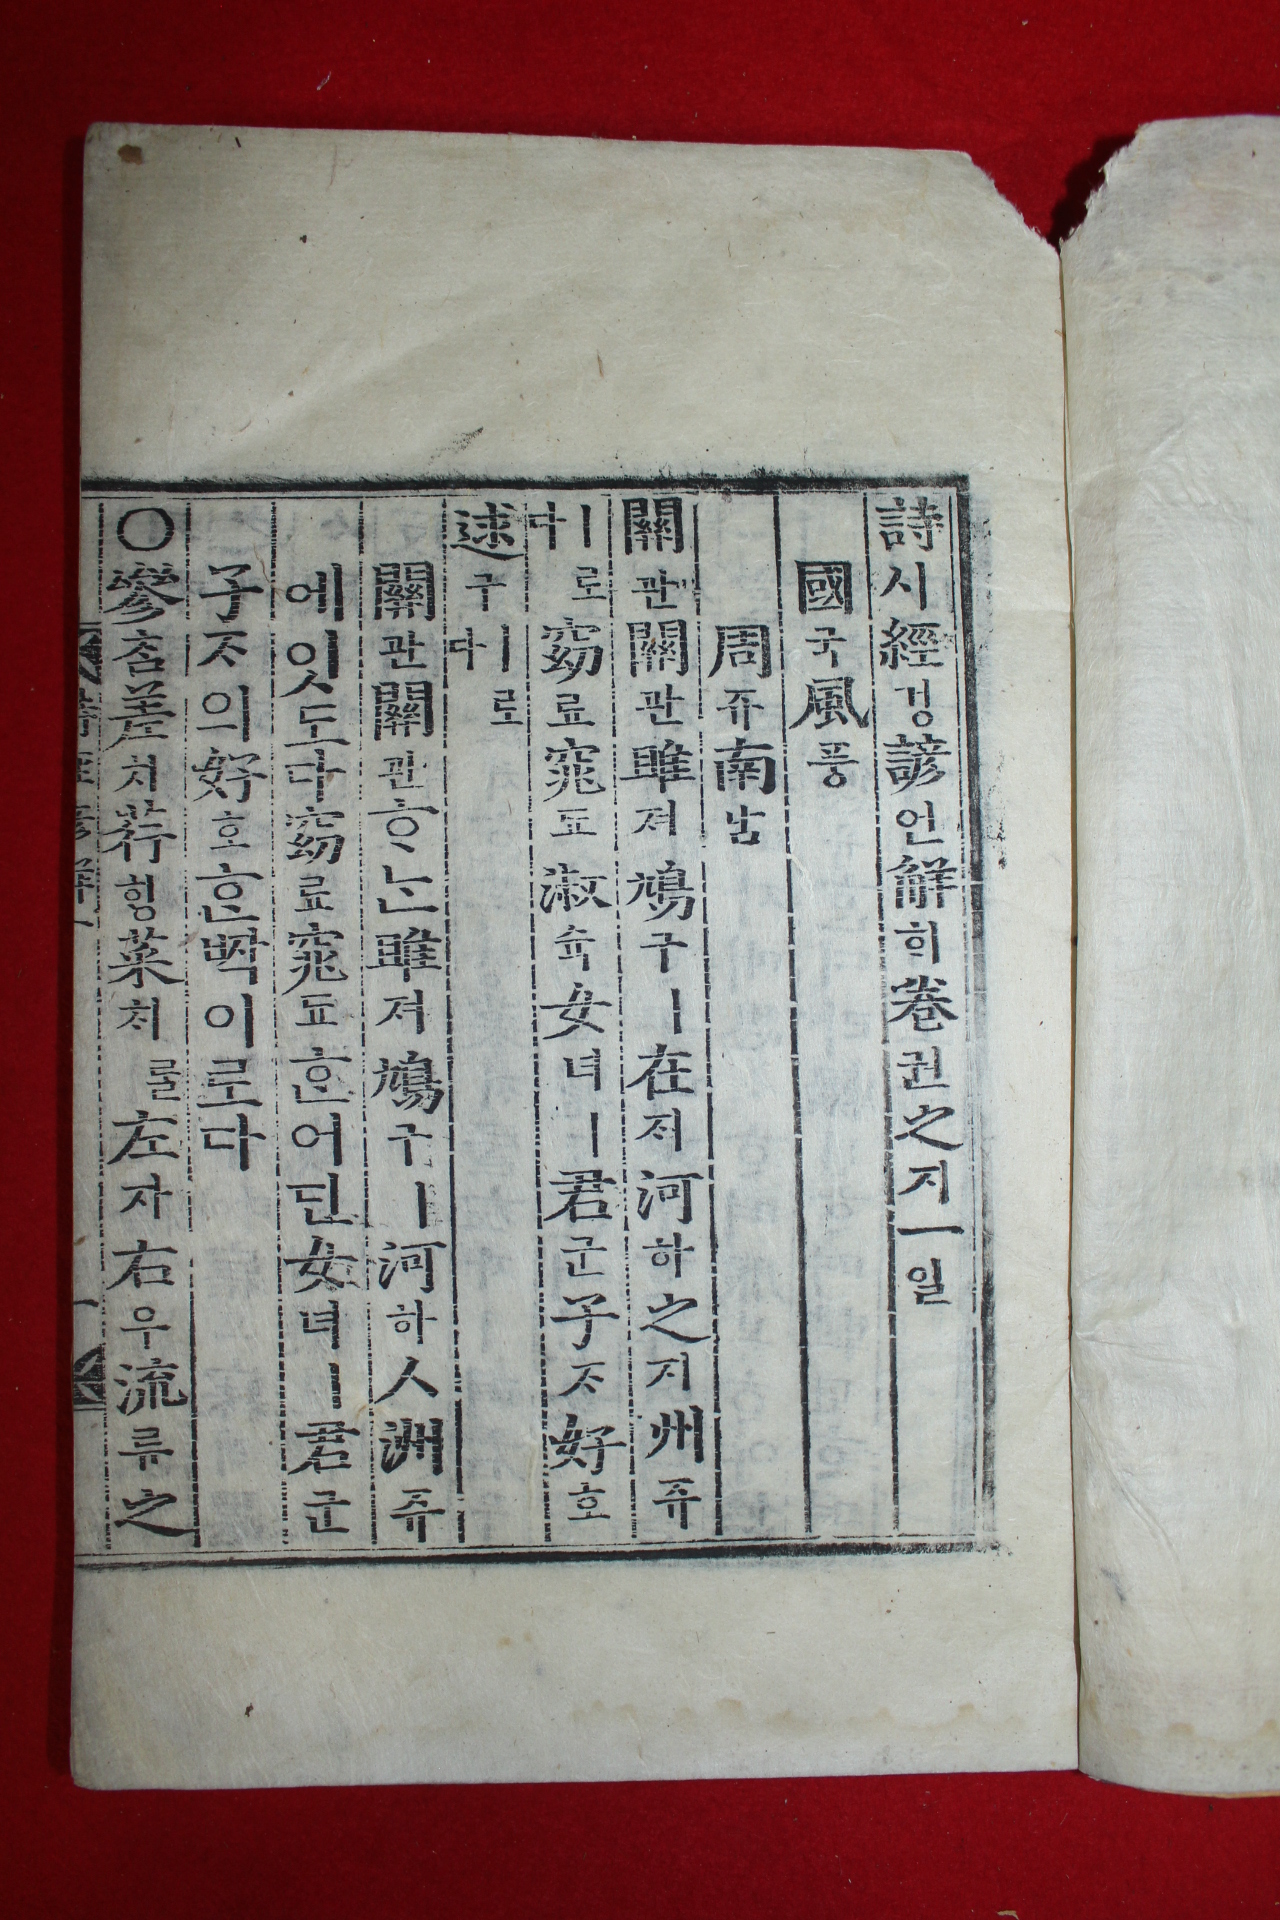 詩시經경諺언解ᄒᆡ卷권之지一일
國국風풍
周쥬南남
關관關관雎져鳩구ㅣ在ᄌᆡ河하之지州쥬
ㅣ로다窈료窕됴淑슉女녀ㅣ君군子ᄌᆞ好호
逑구ㅣ로다
關관關관ᄒᆞᄂᆞᆫ雎져鳩구ㅣ河하人洲쥬
에잇도다窈료窕됴ᄒᆞᆫ어딘女녀ㅣ君군
子ᄌᆞ의好호ᄒᆞᆫᄧᅡᆨ이로다
○參참差치荇ᄒᆡᆼ菜ᄎᆡ를左자右우流류之